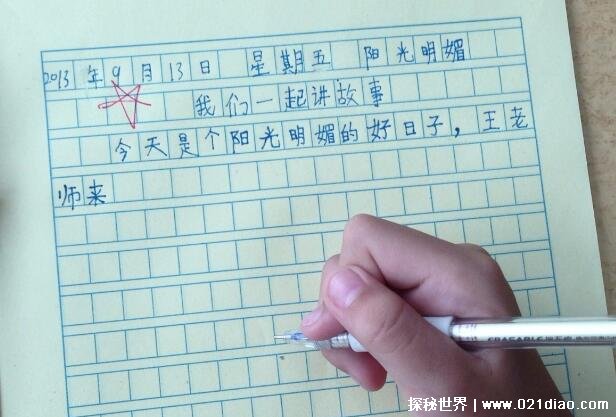 2013年9月13日 星期五 阳光明媚
我们一起讲故事
今天是个阳光明媚的好日子，王老
师来
ERASABLE
探秘世界｜www.021diao.com